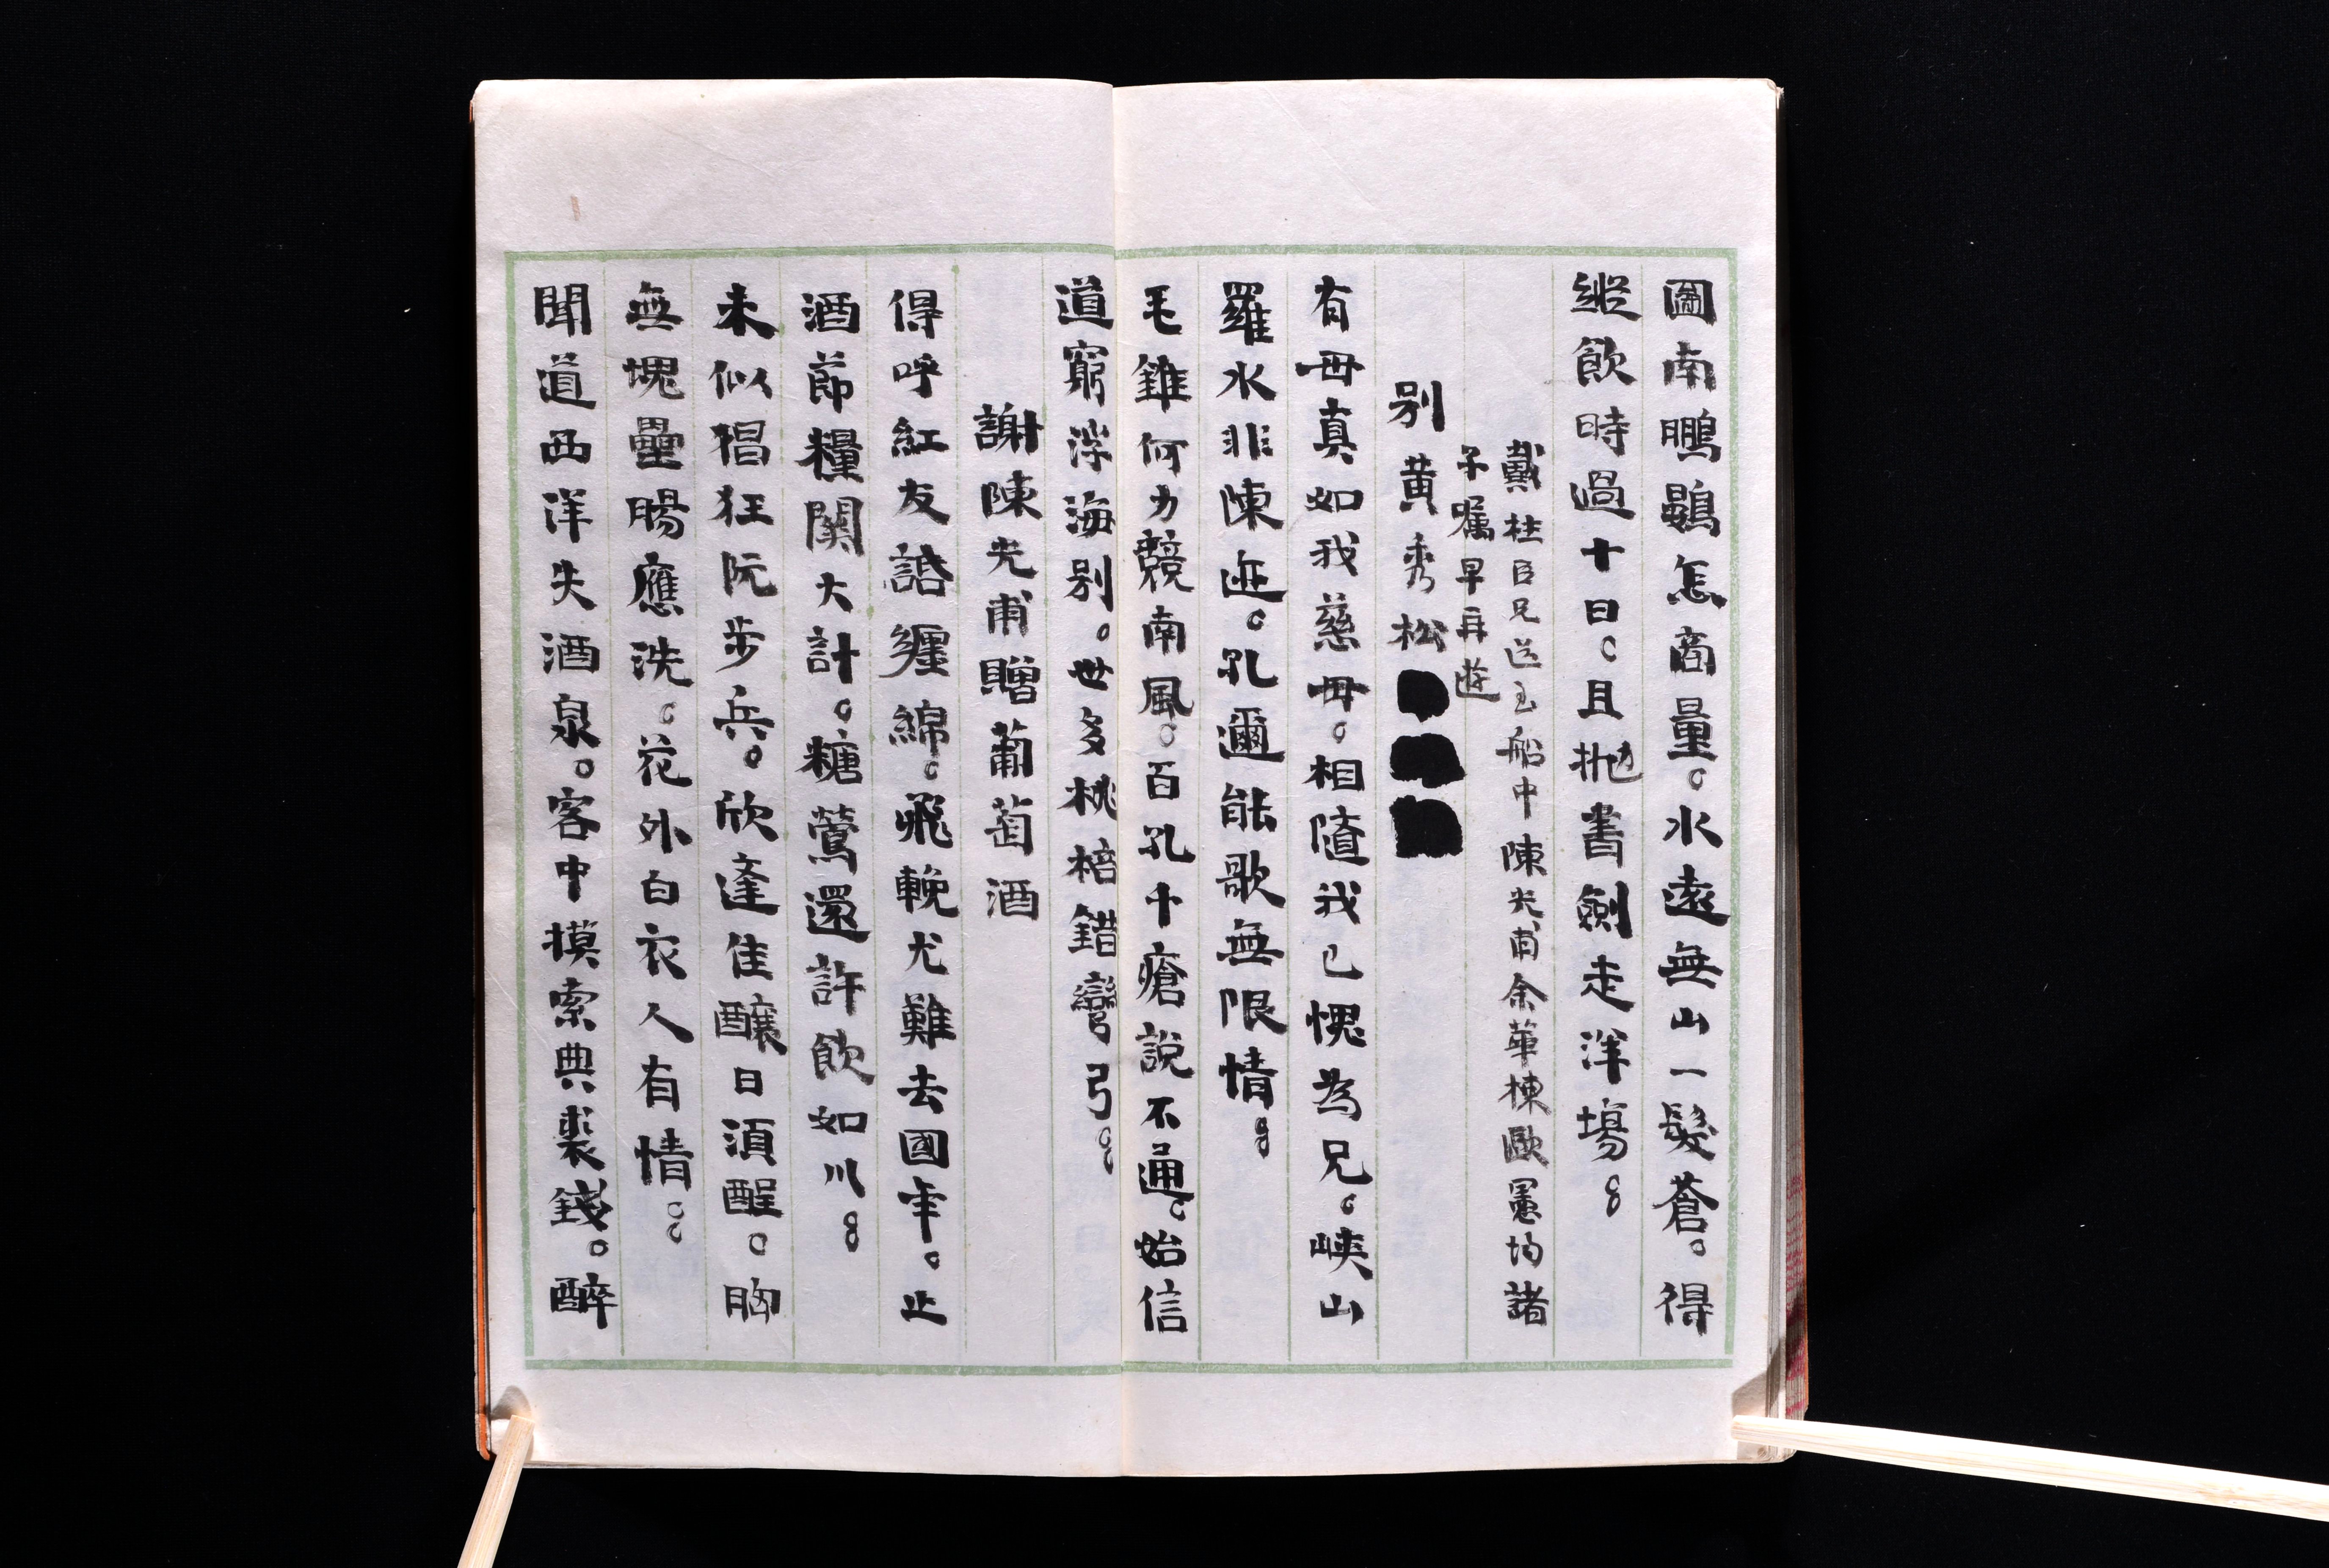 圖南鵬鷃怎商量。水遠無山一髮蒼。得
縱飲時過十日。且拋書劍走洋場。
戴柱臣兄送至船中陳光甫余華棟歐憲均諸
子囑早再遊
別黃秀松
有母真如我慈母。相隨我已愧為兄。峽山
羅水非陳迹。孔邇能歌無限情。
毛錐何力競南風。百孔千瘡說不通。始信
道窮浮海別。世多桃棓錯彎弓。
謝陳光甫贈葡萄酒
得呼紅友諮纏綿。飛輓尤難去國年。止
酒節糧關大計。糖鶯還許飲如川。
未似猖狂阮步兵。欣逢佳釀日須酲。胸
無塊壘腸應洗。花外白衣人有情。
聞道西洋失酒泉。客中摸索典裘錢。醉